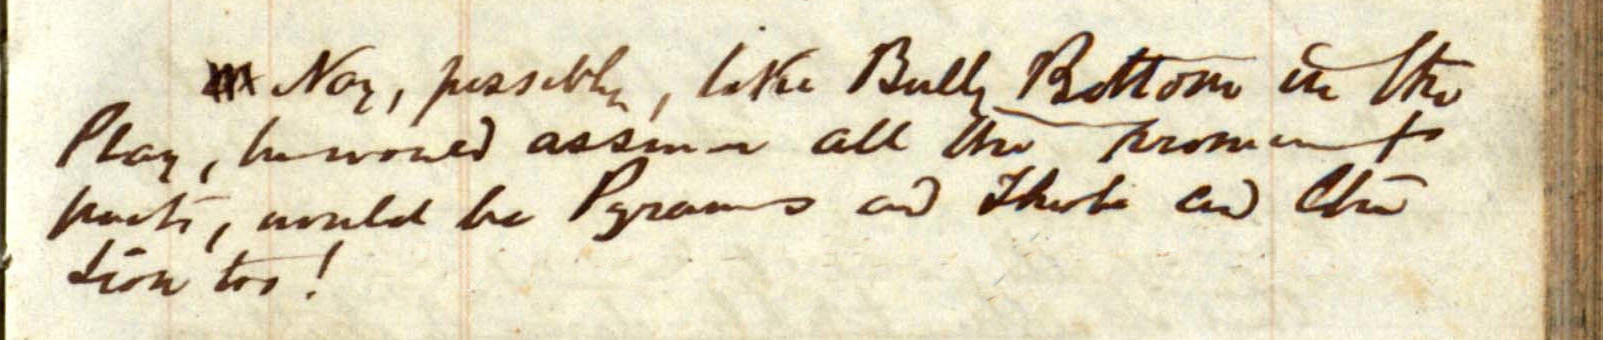 Nay, possibly, like Bully Bottom in the
Play, he would assume all the prominent
parts, would be Pyramus and Thisbe and the
Lion too!